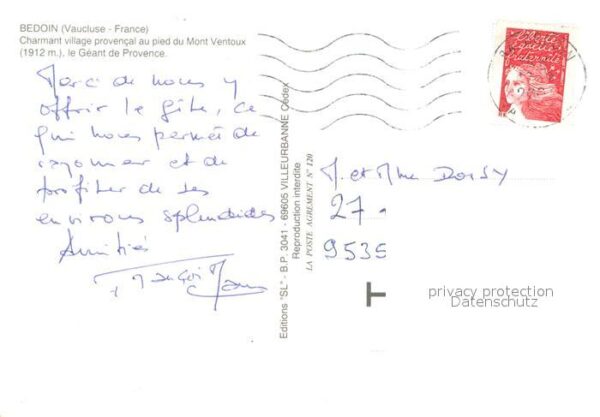 BEDOIN (Vaucluse - France)
Charmant village provençal au pied du Mont Ventoux
(1912 m.), le Géant de Provence.
Merci de nous y
offrir le gîte, ce
qui nous permet de
rayonner et de
profiter de ses
environs splendides
Amitiés
Editions "SL" - B.P. 3041 - 69605 VILLEURBANNE Cédex
Reproduction interdite
LA POSTE AGRÉMENT N° 120
liberté
égalité
fraternité
M. et Mme
27
9535
privacy protection
Datenschutz